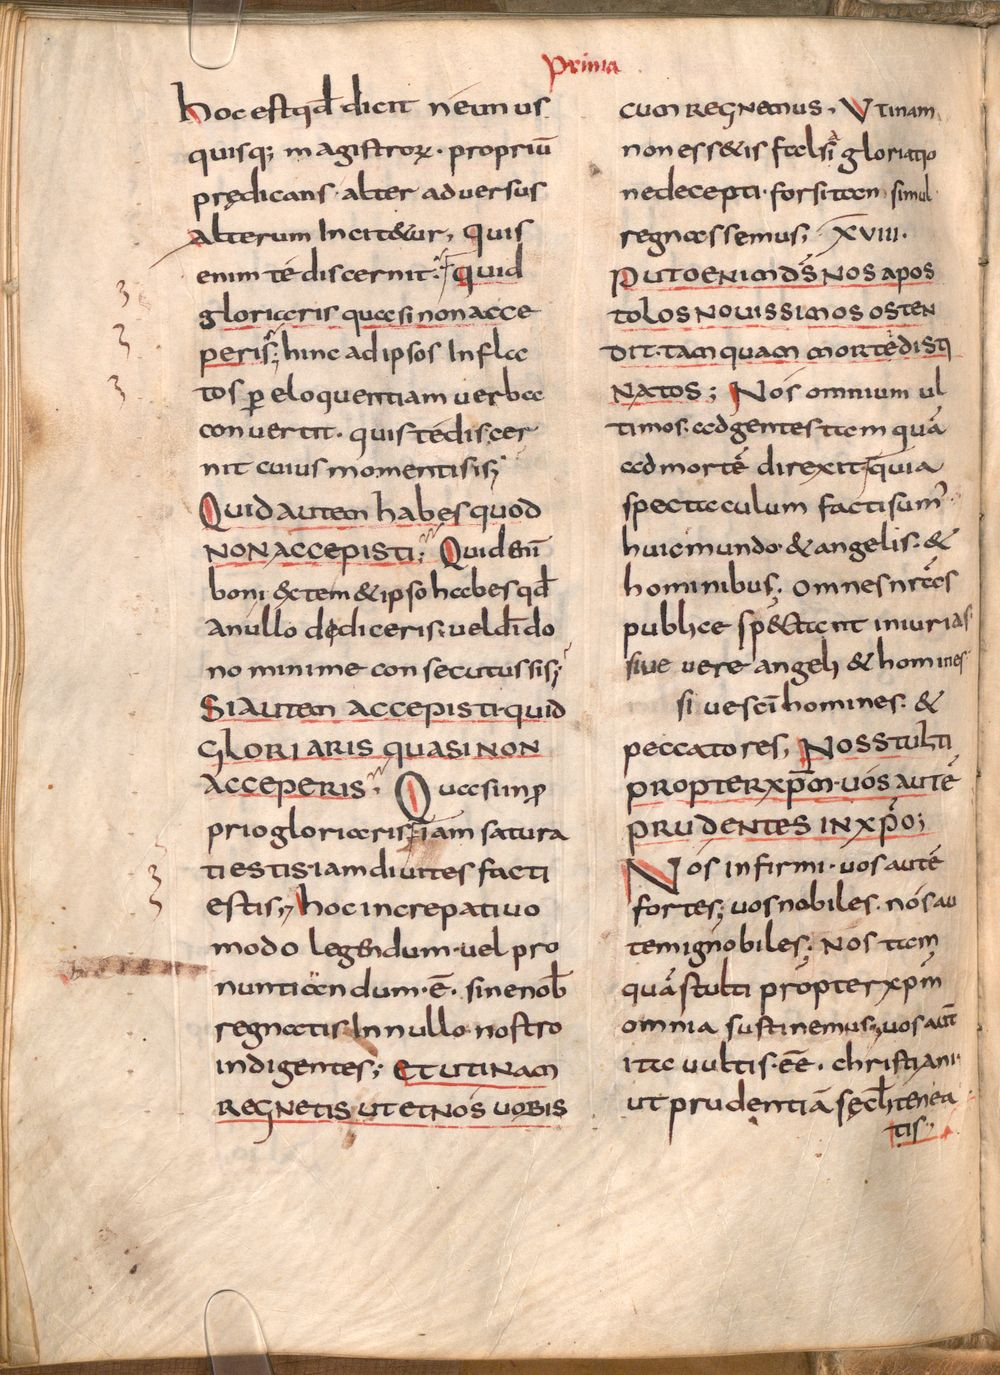 Prima
hoc est qđ dicit ne unus
quisq; magistroꝝ · propriū
prędicans · alter adversus
alterum Incit&ur, Quis
enim té discernit · Quid
gloriaris quasi non acce
peris; hinc ad ipsos Infla
tos ꝑ eloquentiam verba
convertit · quis té discer
nit cuius momenti sis;
Quid autem habes quod
NON ACCEPISTI; Quid enī
boni &tem & ipso habes qđ
a nullo dediceris; vel dīdo
no minime consecutus sis;
SI AUTEM ACCEPISTI · QUID
GLORIARIS QUASI NON
ACCEPERIS; Quasi in ꝓ
prio gloriaris; iam satura
ti estis · iam divites facti
estis; hoc increpativo
modo legendum · vel pro
nuntiandum · ē · sine nob̄
regnatis In nullo nostro
indigentes; ET UTINAM
REGNETIS UT ET NOS UOBIS
CUM REGNEMUS, Utinam
non ess&is falsi gloriatio
ne decepti · forsitan simul
regnassemus; XVIII ·
PUTO ENIM DS̄ NOS APOS
TOLOS NOUISSIMOS OSTEN
DIT · TAMQUAM MORTE DISTI
NATOS; Nós omnium ul
timos · ad gentes tam quā
ad mortē direxit, quia
spectaculum facti sum̄
huic mundo · & angelis · &
hominibus; Omnes nr̄as
publice sp&tant iniurias
sive vere angeli & homines
si ve scī homines · &
peccatores; NOS STULTI
PROPTER XPM̄ · UOS AUTĒ
PRUDENTES IN XPO;
Nos infirmi · vos autē
fortes; vos nobiles · nós au
tem ignobiles; Nos tam
quā stulti propter xpm̄
omnia sustinemus, vos aut̄
ita vultis · eē · christiani
ut prudentiā sęcl̄i tenea
tis;